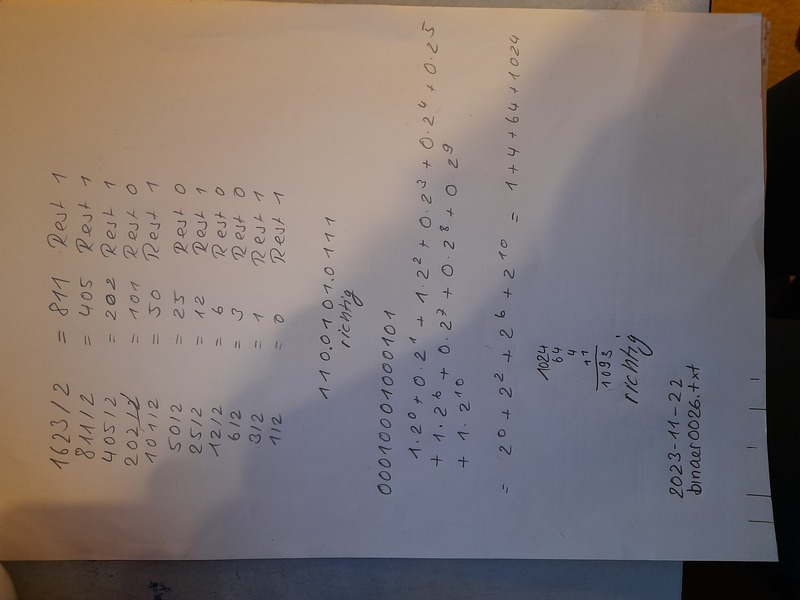 1623/2 = 811 Rest 1
811/2 = 405 Rest 1
405/2 = 202 Rest 1
202/2 = 101 Rest 0
101/2 = 50 Rest 1
50/2 = 25 Rest 0
25/2 = 12 Rest 1
12/2 = 6 Rest 0
6/2 = 3 Rest 0
3/2 = 1 Rest 1
1/2 = 0 Rest 1
110.0101.0111
richtig
00010001000101
1·2⁰ + 0·2¹ + 1·2² + 0·2³ + 0·2⁴ + 0·2⁵
+ 1·2⁶ + 0·2⁷ + 0·2⁸ + 0·2⁹
+ 1·2¹⁰
= 2⁰ + 2² + 2⁶ + 2¹⁰ = 1 + 4 + 64 + 1024
1024
64
4
11
1093
richtig
2023-11-22
binaer0026.txt